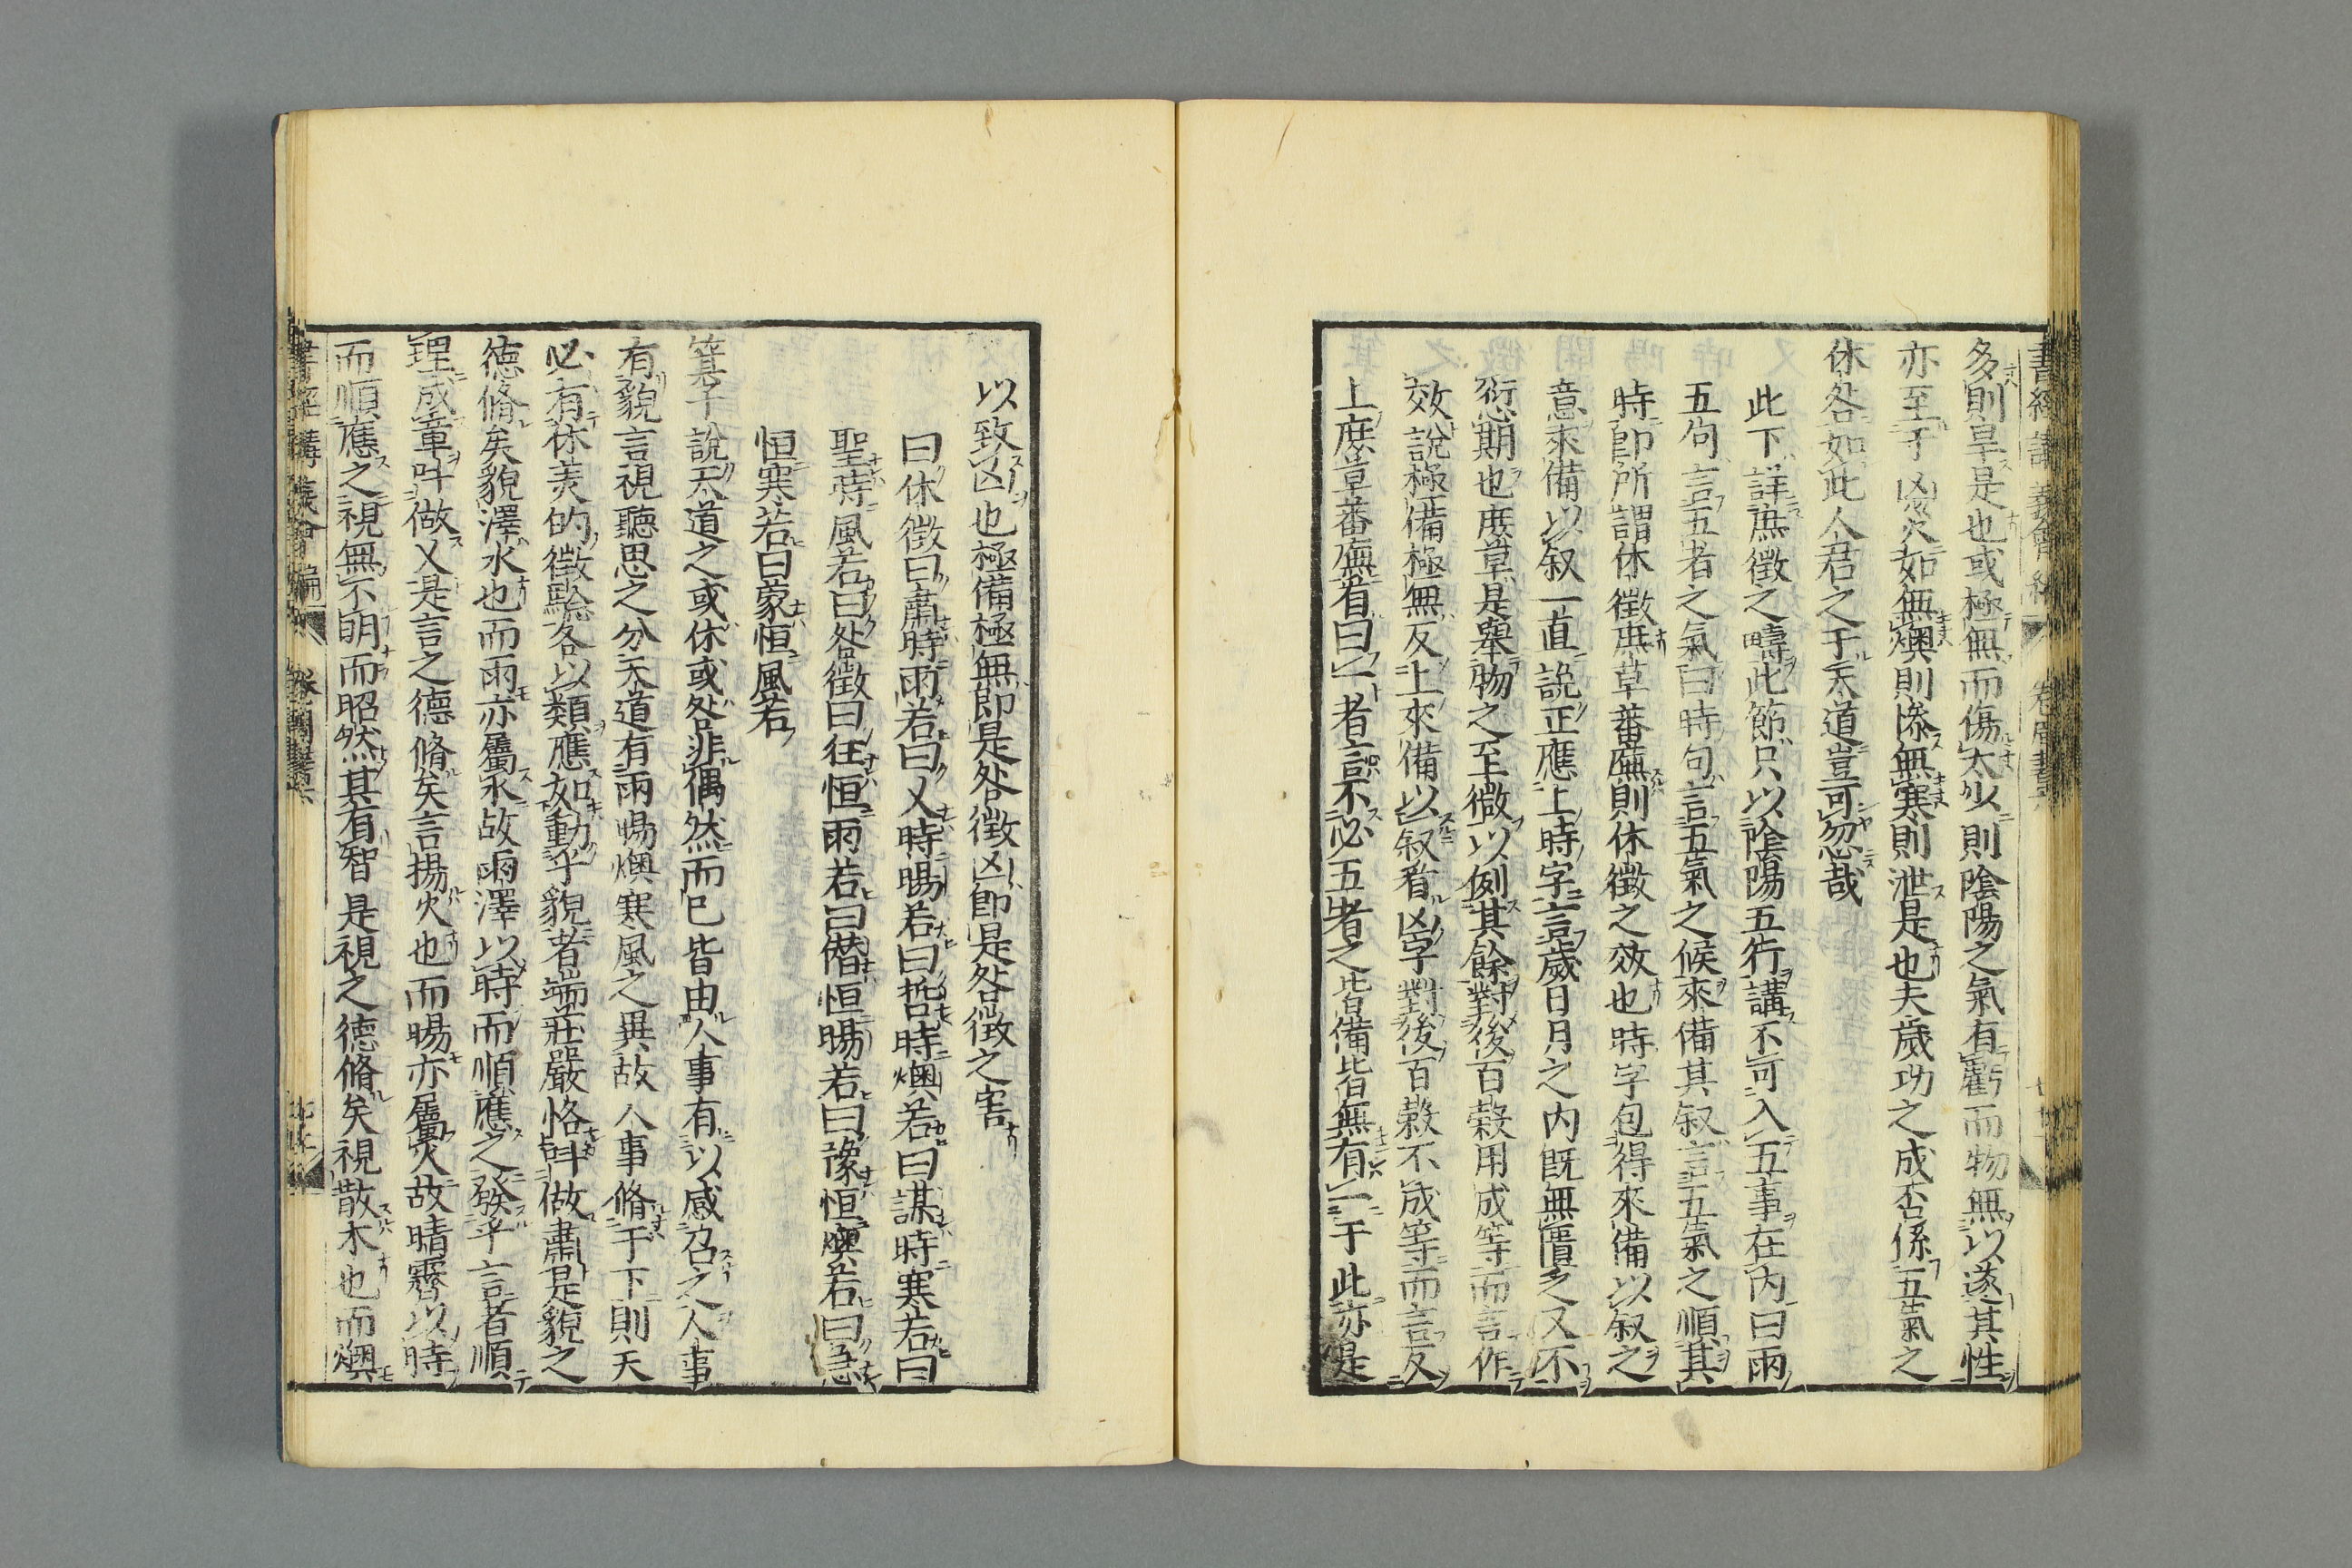 多則旱是也或極無而傷太少則陰陽之氣有虧而物無以遂其性
亦至于凶災如無燠則慘無寒則泄是也夫歲功之成否係五氣之
休咎如此人君之于天道豈可忽哉
此下詳庶徵之疇此節只以陰陽五行講不可入五事在內曰雨
五句言五者之氣曰時句言五氣之候來備其叙言五氣之順其
時即所謂休徵庶草蕃蕪則休徵之效也時字包得來備以叙之
意來備以叙一直說正應上時字言歲日月之内既無匱乏又不
愆期也庶草是舉物之至微以例其餘對後百穀用成等而言作
效說極備極無反上來備以叙看凶字對後百穀不成等而言反
上庶草蕃廡看曰一者言不必五者之皆備皆無有一于此亦是
以致凶也極備極無即是咎徵凶即是咎徵之害
曰休徵曰肅時雨若曰乂時暘若曰哲時燠若曰謀時寒若曰
聖時風若曰咎徵曰狂恒雨若曰僭恒暘若曰豫恒燠若曰急
恒寒若曰蒙恒風若
箕子說天道之或休或咎非偶然而已皆由人事有以感召之人事
有貌言視聽思之分天道有雨暘燠寒風之異故人事脩于下則天
必有休美的徵驗各以類應如動乎貌者端莊嚴恪叫做肅是貌之
德脩矣貌澤水也而雨亦屬水故雨澤以時而順應之發乎言者順
理成章叫做乂是言之德脩矣言揚火也而暘亦屬火故晴霽以時
而順應之視無不明而昭然其有智是視之德脩矣視散木也而燠
書經講義會編